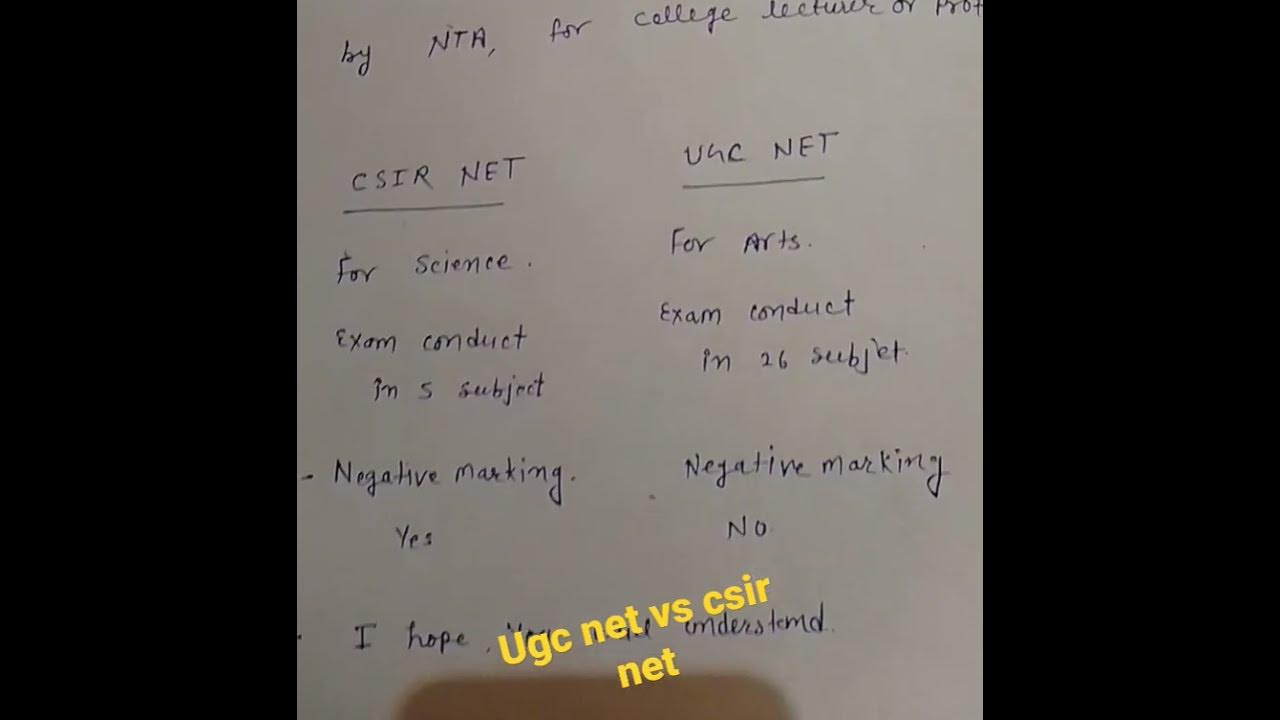 by NTA, for college lecturer or Prof
CSIR NET
UGC NET
For Science.
For Arts.
Exam conduct
in 5 subject
Exam conduct
in 26 subjet.
- Negative marking.
Yes
Negative marking
No
I hope, understand.
Ugc net vs csir
net